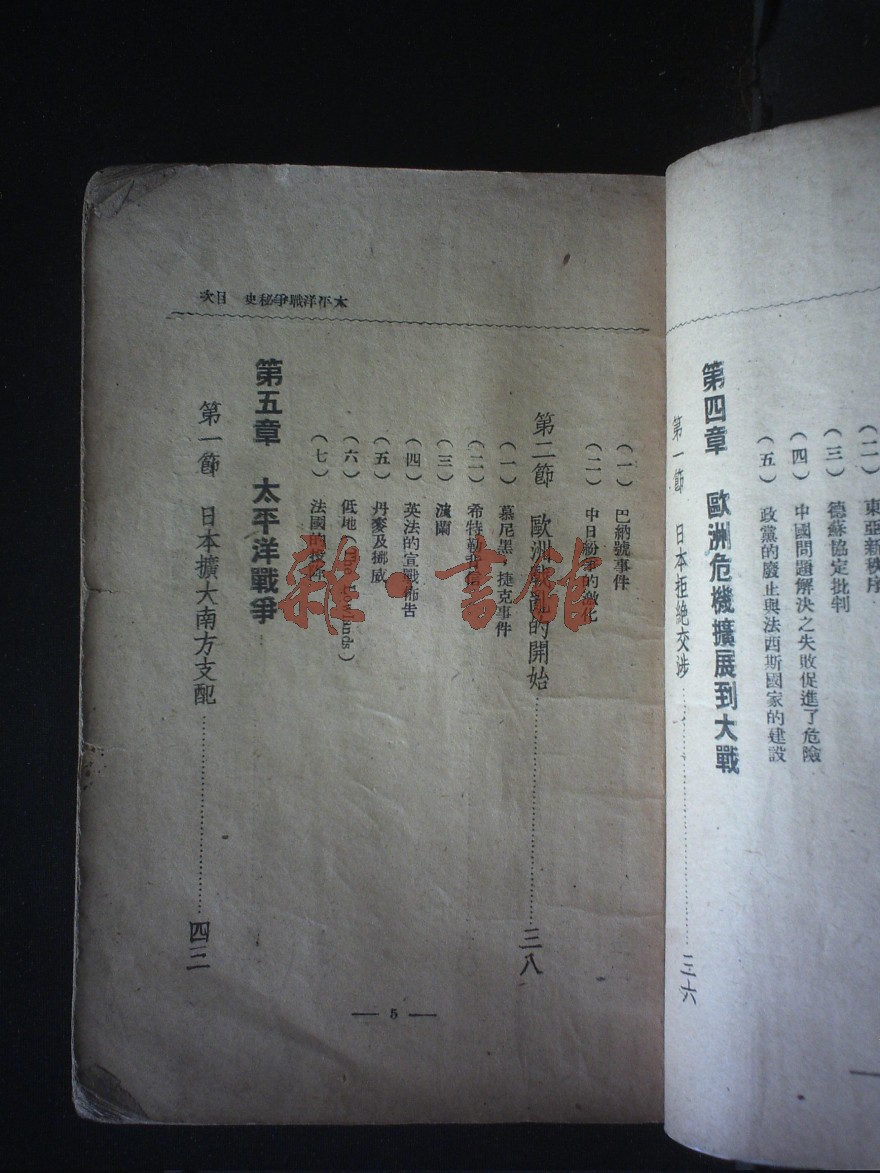 (二) 東亞新秩序
(三) 德蘇協定批判
(四) 中國問題解決之失敗促進了危險
(五) 政黨的廢止與法西斯國家的建設
第四章 歐洲危機擴展到大戰
第一節 日本拒絕交涉……三六
太平洋戰爭秘史 目次
(一) 巴納號事件
(二) 中日紛爭的激化
第二節 歐洲戰亂的開始……三八
(一) 慕尼黑，捷克事件
(二) 希特勒背信
(三) 波蘭
(四) 英法的宣戰佈告
(五) 丹麥及挪威
(六) 低地 (The Lowlands)
(七) 法國的投降
第五章 太平洋戰爭
第一節 日本擴大南方支配……四三
— 5 —
雜·書館